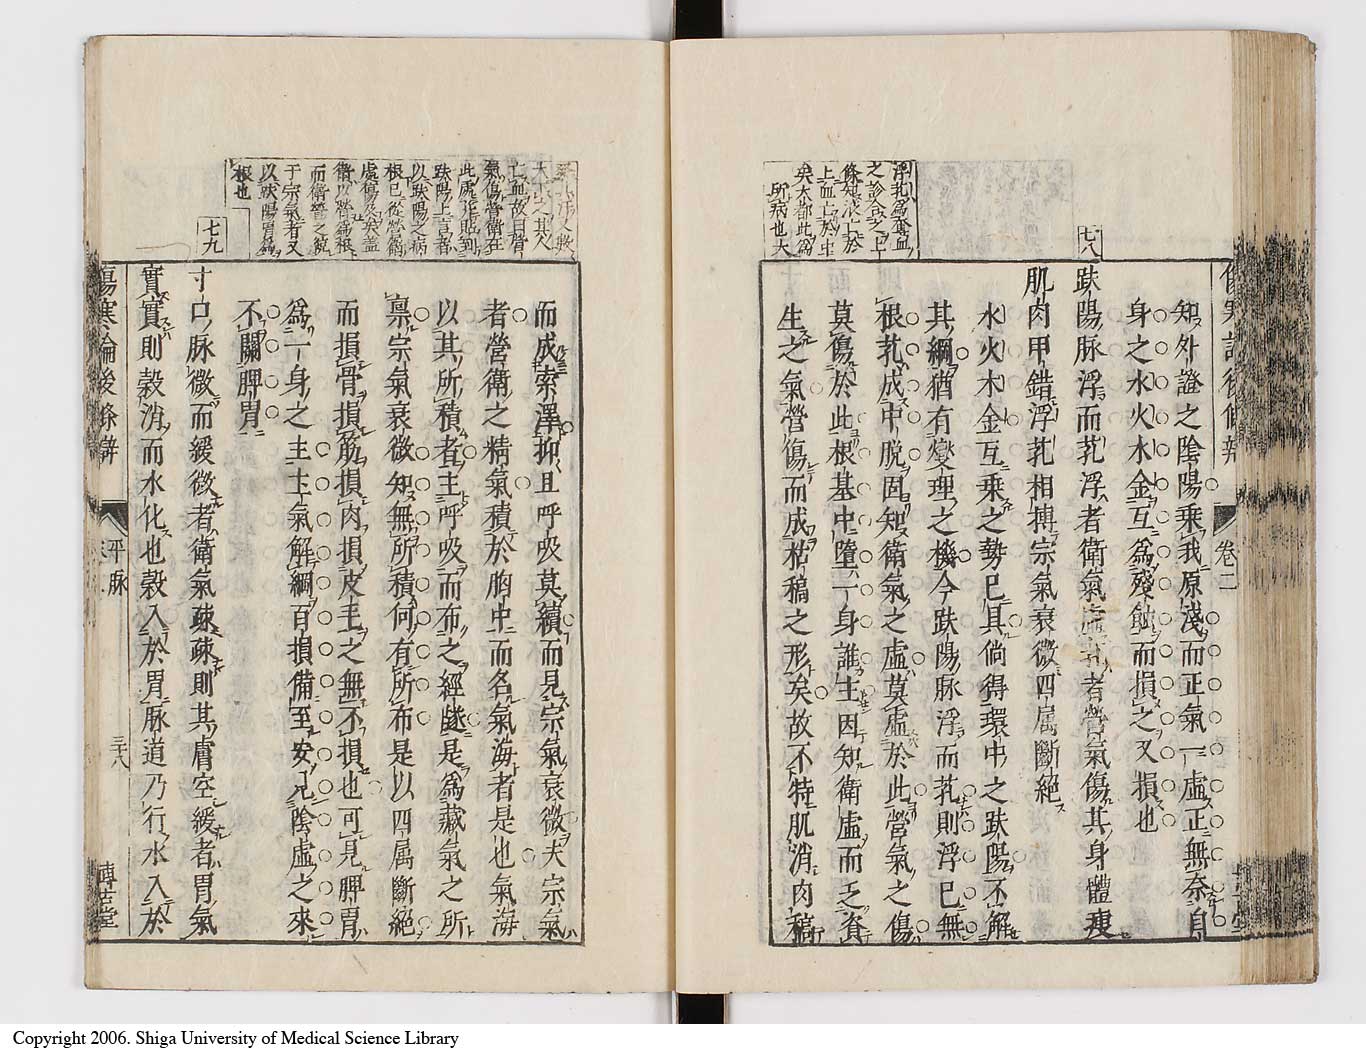 七八
知外證之陰陽乘我原淺而正氣一虛正無奈自
身之水火木金互爲殘蝕而損之又損也
趺陽脉浮而芤浮者衛氣虛芤者營氣傷其身體瘦
肌肉甲錯浮芤相搏宗氣衰微四属斷絕
水火木金互乘之勢已具倘得環中之趺陽不解
其綱猶有燮理之機今趺陽脉浮而芤則浮已無
根芤成中脫固知衛氣之虛莫虛於此營氣之傷
莫傷於此根基中墮一身誰主因知衛虛而乏資
生之氣營傷而成枯稿之形矣故不特肌消肉稿
之診合之上
上血亡於中
矣大都此爲
所病也大
卷二
而成索澤抑且呼吸莫續而見宗氣衰微夫宗氣
者營衛之精氣積於胸中而名氣海者是也氣海
以其所積者主呼吸而布之經隧是爲藏氣之所
禀宗氣衰微知無所積何有所布是以四属斷絕
而損骨損筋損肉損皮毛之無不損也可見脾胃
爲一身之主主氣解綱百損備至安凡陰虛之來
不關脾胃
七九
寸口脉微而緩微者衛氣疎疎則其膚空緩者胃氣
實實則穀消而水化也穀入於胃脉道乃行水入於
氣傷營衛在
此處非貼到
趺陽上言者
以趺陽之病
根已從營衛
處傷矣蓋
衛以營爲根
而衛營之統
于宗氣者又
以趺陽胃爲
根也
傷寒論後條辨
平脉
三十八
博古堂
Copyright 2006. Shiga University of Medical Science Library